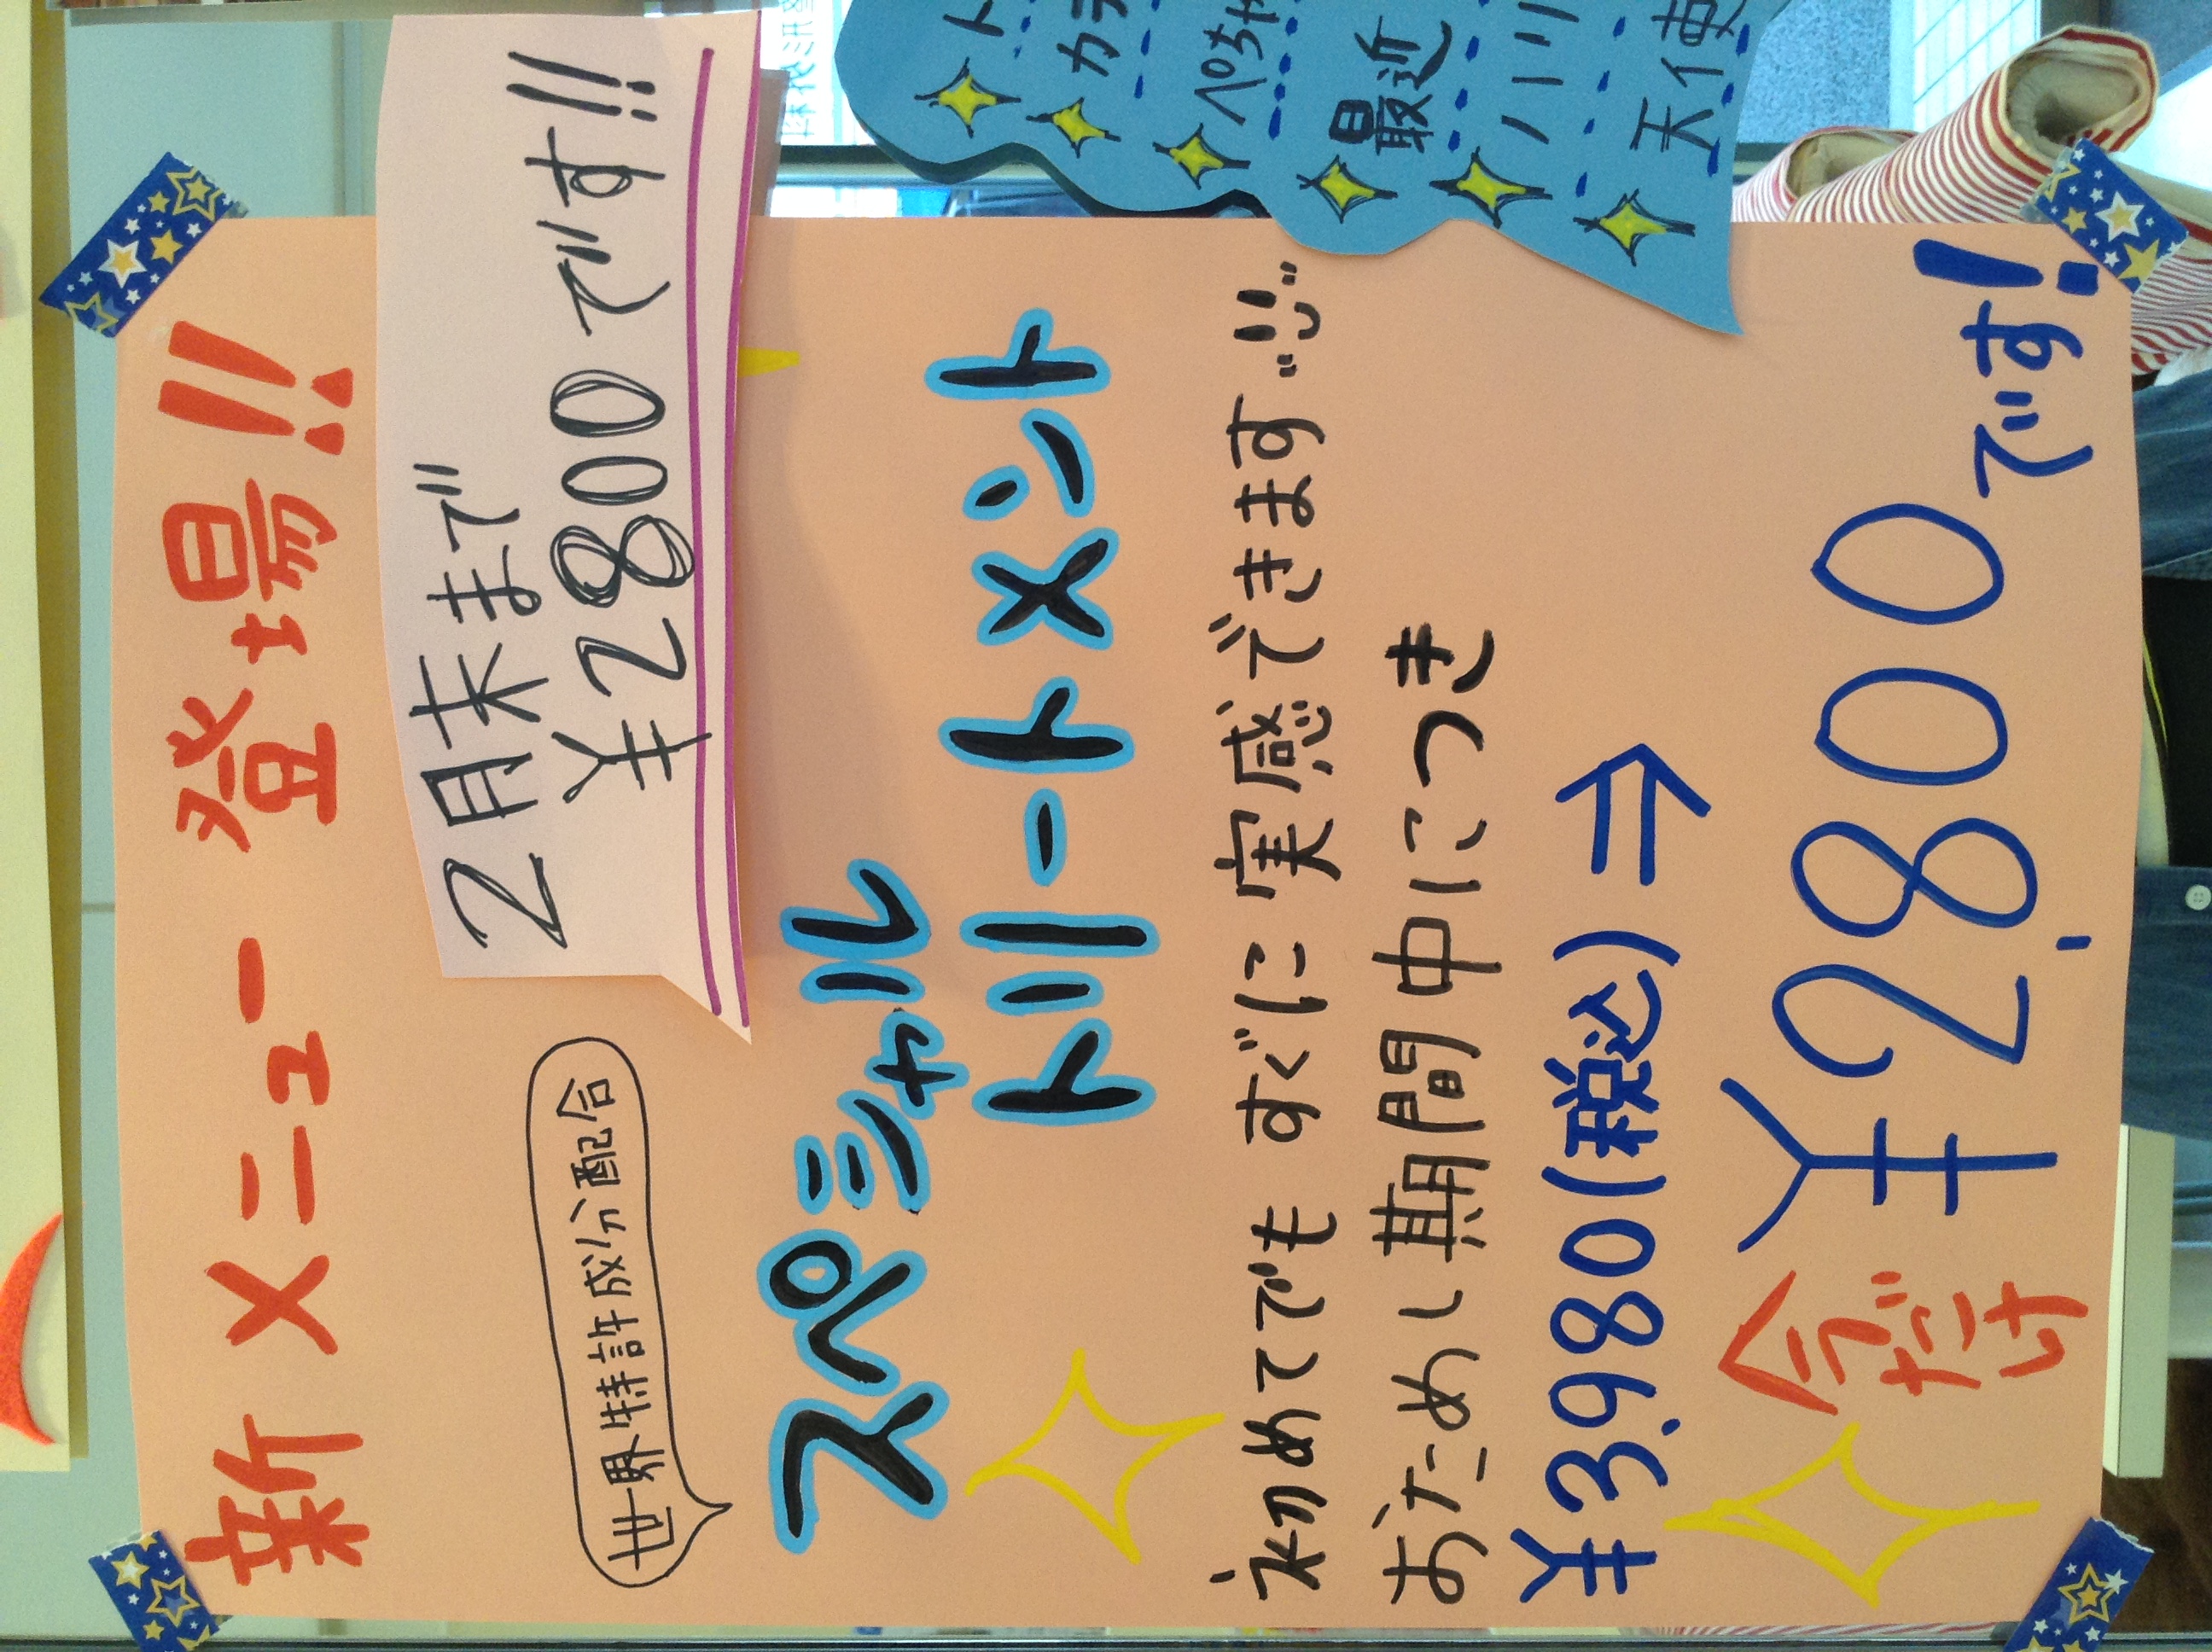 新メニュー 登場!!
2月末まで
¥2800です!!
世界特許成分配合
スペシャル
トリートメント
初めてでも すぐに 実感できます
おためし期間中につき
¥3,980(税込)⇒
今だけ
¥2,800です!
カラ
ぺちゃ
最近
天使